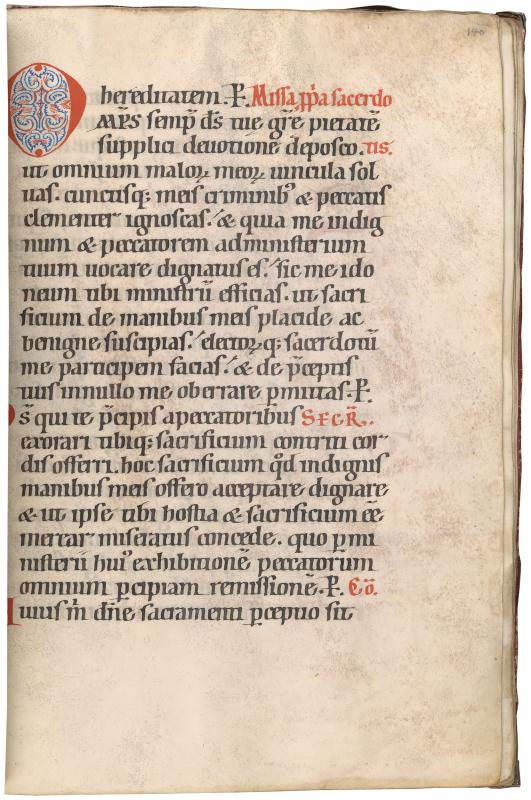 140
hereditatem. P. Missa ꝓpa sacerdo
OMPS semꝑ d̄s tue gr̄e pietatē
supplici deuotione deposco. tis.
ut omnium maloꝝ meoꝝ uincula sol
uas. cunctisq; meis criminib; & peccatis
clementer ignoscas. & quia me indig
num & peccatorem ad ministerium
tuum uocare dignatus es. sic me ido
neum tibi ministrū efficias. ut sacri
ficium de manibus meis placide ac
benigne suscipias. electoꝝq; sacerdotū
me participem facias. & de p̄ceptis
tuis in nullo me oberrare ꝑmittas. P.
Ds̄ qui te p̄cipis a peccatoribus SECR̄.
exorari tibiq; sacrificium contriti cor
dis offerri. hoc sacrificium qd̄ indignis
manibus meis offero acceptare dignare
& ut ipse tibi hostia & sacrificium eē
merear miseratus concede. quo ꝑ mi
nisterii hui᾽ exhibitionē peccatorum
omnium ꝑcipiam remissionē. P. Cō.
Huius m̄ dn̄e sacramenti ꝑceptio sit